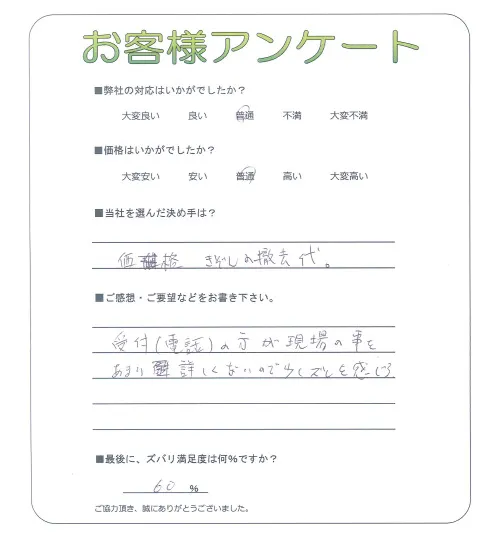 お客様アンケート
■弊社の対応はいかがでしたか？
大変良い 良い 普通 不満 大変不満
■価格はいかがでしたか？
大変安い 安い 普通 高い 大変高い
■当社を選んだ決め手は？
価格 きぞんの撤去代。
■ご感想・ご要望などをお書き下さい。
受付(電話)の方が現場の事を
あまり詳しくないので少しズレを感じる
■最後に、ズバリ満足度は何％ですか？
60 ％
ご協力頂き、誠にありがとうございました。